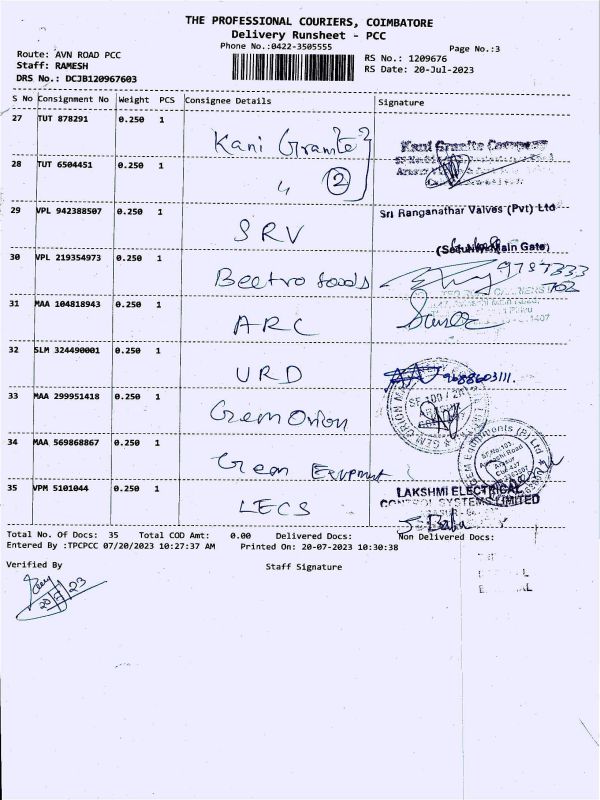 THE PROFESSIONAL COURIERS, COIMBATORE
Delivery Runsheet - PCC
Phone No.:0422-3505555
Page No.:3
Route: AVN ROAD PCC
Staff: RAMESH
DRS No.: DCJB120967603
RS No.: 1209676
RS Date: 20-Jul-2023
S No Consignment No Weight PCS Consignee Details Signature
27 TUT 878291 0.250 1 Kani Granite Kani Granite Company
28 TUT 6504451 0.250 1 " 2
29 VPL 942388507 0.250 1 SRV Sri Ranganathar Valves (Pvt) Ltd
(Security Main Gate)
30 VPL 219354973 0.250 1 Beetro foods
31 MAA 104818943 0.250 1 ARC
32 SLM 324490001 0.250 1 URD 9688603111.
33 MAA 299951418 0.250 1 Gem Orion
34 MAA 569868867 0.250 1 Gem Equipment
35 VPM 5101044 0.250 1 LECS LAKSHMI ELECTRICAL
CONTROL SYSTEMS LIMITED
S. Baba
Total No. Of Docs: 35 Total COD Amt: 0.00 Delivered Docs: Non Delivered Docs:
Entered By :TPCPCC 07/20/2023 10:27:37 AM Printed On: 20-07-2023 10:30:38
Verified By Staff Signature